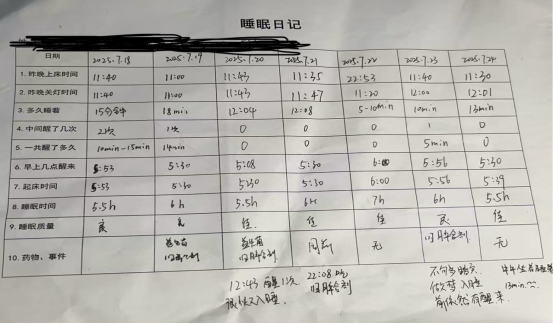 睡眠日记
日期 2025.7.18 2025.7.19 2025.7.20 2025.7.21 2025.7.22 2025.7.23 2025.7.24
1. 昨晚上床时间 11:40 11:00 11:43 11:35 22:53 11:40 11:30
2. 昨晚关灯时间 11:40 11:00 11:43 11:47 11:20 12:00 12:01
3. 多久睡着 15分钟 18min 12:04 12:08 5-10min 10min 13min
4. 中间醒了几次 2次 1次 0 0 0 1 0
5. 一共醒了多久 10min-15min 14min 0 0 0 5min 0
6. 早上几点醒来 5:53 5:30 5:08 5:30 6:00 5:56 5:30
7. 起床时间 5:53 5:30 5:30 5:30 6:00 5:56 5:39
8. 睡眠时间 5.5h 6h 5.5h 6H 7h 6h 5.5h
9. 睡眠质量 良 佳 佳 佳 良 佳
10. 药物、事件 益生菌 益生菌 同前 无 无
12:43 醒1次 22:08
很快入睡
做梦 入睡
醒来 13min